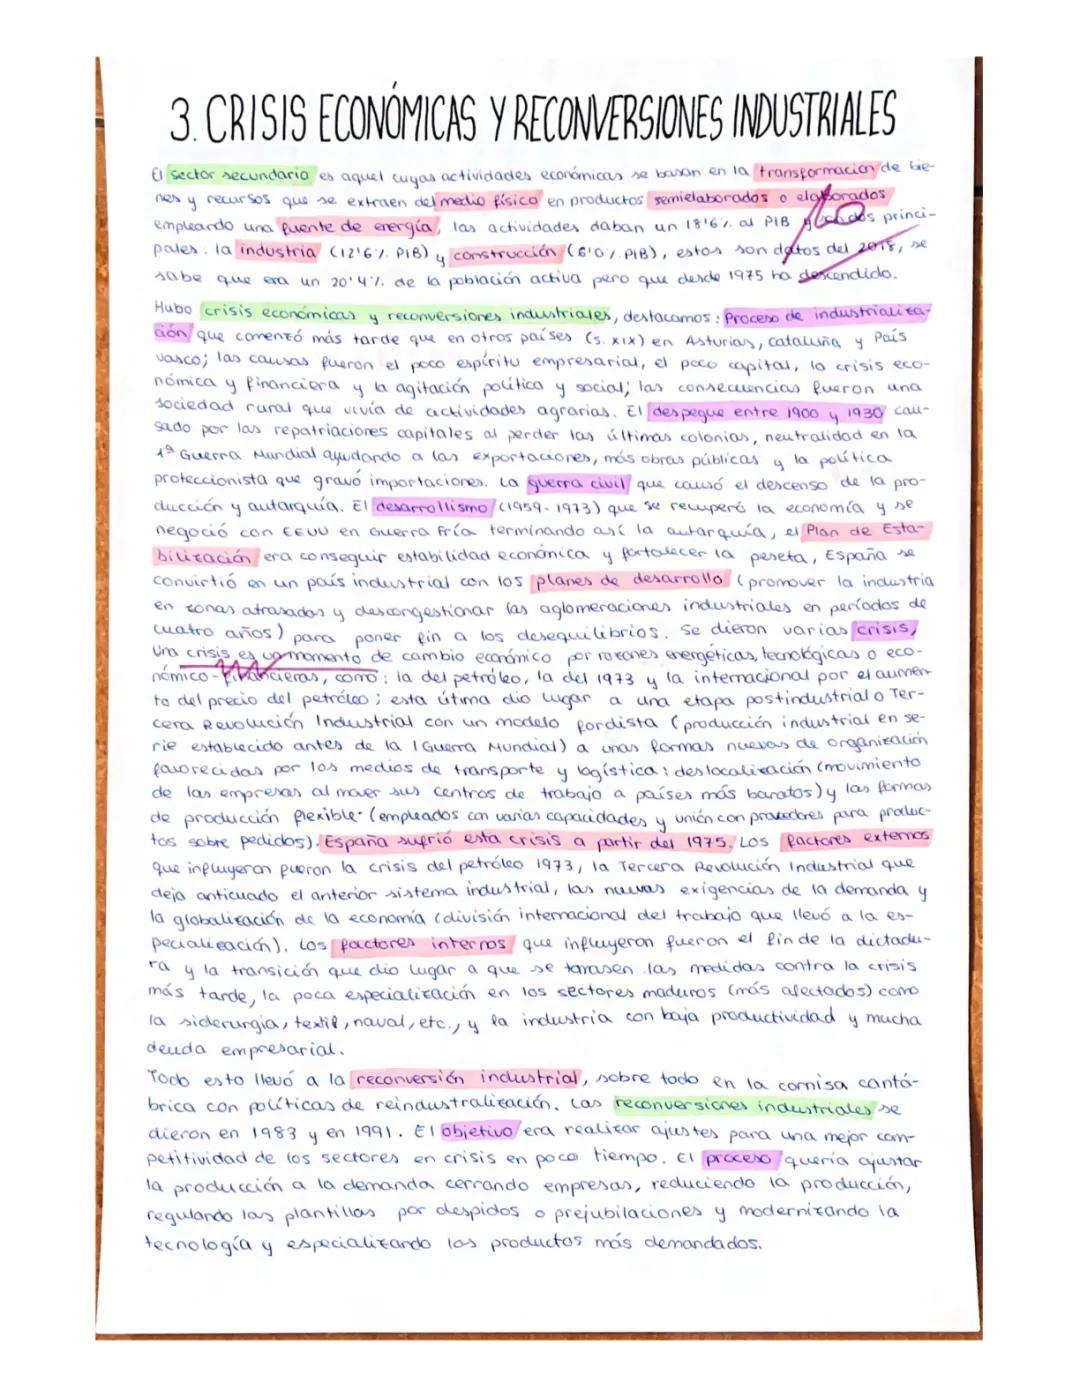 3. CRISIS ECONÓMICAS Y RECONVERSIONES INDUSTRIALES
El sector secundario es aquel cuyas actividades económicas se basan en la transformación de bie-
nes y recursos que se extraen del medio físico en productos semielaborados o elaborados
empleando una fuente de energía, las actividades daban un 18'6% al PIB y dos princi-
pales: la industria (12'6% PIB) y construcción (6'0% PIB), estos son datos del 2018, se
sabe que era un 20'4% de la población activa pero que desde 1975 ha descendido.
Hubo crisis económicas y reconversiones industriales, destacamos: Proceso de industrializa-
ción que comenzó más tarde que en otros países (s. XIX) en Asturias, Cataluña y País
vasco; las causas fueron el poco espíritu empresarial, el poco capital, la crisis eco-
nómica y financiera y la agitación política y social; las consecuencias fueron una
sociedad rural que vivía de actividades agrarias. El despegue entre 1900 y 1930 cau-
sado por las repatriaciones capitales al perder las últimas colonias, neutralidad en la
1ª Guerra Mundial ayudando a las exportaciones, más obras públicas y la política
proteccionista que gravó importaciones. La guerra civil que causó el descenso de la pro-
ducción y autarquía. El desarrollismo (1959-1973) que se recuperó la economía y se
negoció con EEUU en Guerra Fría terminando así la autarquía, el Plan de Esta-
bilización era conseguir estabilidad económica y fortalecer la peseta, España se
convirtió en un país industrial con los planes de desarrollo (promover la industria
en zonas atrasadas y descongestionar las aglomeraciones industriales en períodos de
cuatro años) para poner fin a los desequilibrios. Se dieron varias crisis,
Una crisis es un momento de cambio económico por razones energéticas, tecnológicas o eco-
nómico-financieras, como: la del petróleo, la del 1973 y la internacional por el aumen-
to del precio del petróleo; esta útima dio lugar a una etapa postindustrial o Ter-
cera Revolución Industrial con un modelo fordista (producción industrial en se-
rie establecido antes de la I Guerra Mundial) a unas formas nuevas de organización
favorecidas por los medios de transporte y logística: deslocalización (movimiento
de las empresas al mover sus centros de trabajo a países más baratos) y las formas
de producción flexible (empleados con varias capacidades y unión con provedores para produc-
tos sobre pedidos). España sufrió esta crisis a partir del 1975. Los factores externos
que influyeron fueron la crisis del petróleo 1973, la Tercera Revolución Industrial que
deja anticuado el anterior sistema industrial, las nuevas exigencias de la demanda y
la globalización de la economía (división internacional del trabajo que llevó a la es-
pecialización). Los factores internos que influyeron fueron el fin de la dictadu-
ra y la transición que dio lugar a que se tomasen las medidas contra la crisis
más tarde, la poca especialización en los sectores maduros (más afectados) como
la siderurgia, textil, naval, etc., y la industria con baja productividad y mucha
deuda empresarial.
Todo esto llevó a la reconversión industrial, sobre todo en la cornisa cantá-
brica con políticas de reindustralización. Las reconversiones industriales se
dieron en 1983 y en 1991. El objetivo era realizar ajustes para una mejor com-
petitividad de los sectores en crisis en poco tiempo. El proceso quería ajustar
la producción a la demanda cerrando empresas, reduciendo la producción,
regulando las plantillas por despidos o prejubilaciones y modernizando la
tecnología y especializando los productos más demandados.